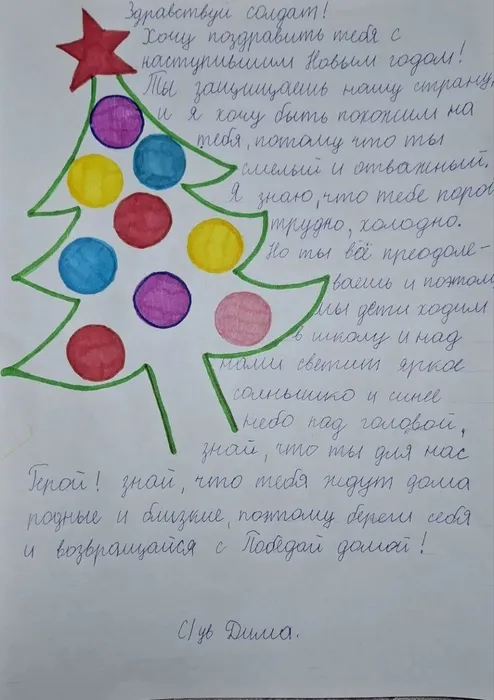 Здравствуй солдат!
Хочу поздравить тебя с
наступившим Новым годом!
Ты защищаешь нашу страну,
и я хочу быть похожим на
тебя, потому что ты
смелый и отважный.
Я знаю, что тебе поров
трудно, холодно.
Но ты всё преодоле-
ваешь и поэтому
мы дети ходим
в школу и над
нами светит яркое
солнышко и синее
небо над головой,
знай, что ты для нас
Герой! знай, что тебя ждут дома
родные и близкие, поэтому береги себя
и возвращайся с Победой домой!
С/ув Дима.